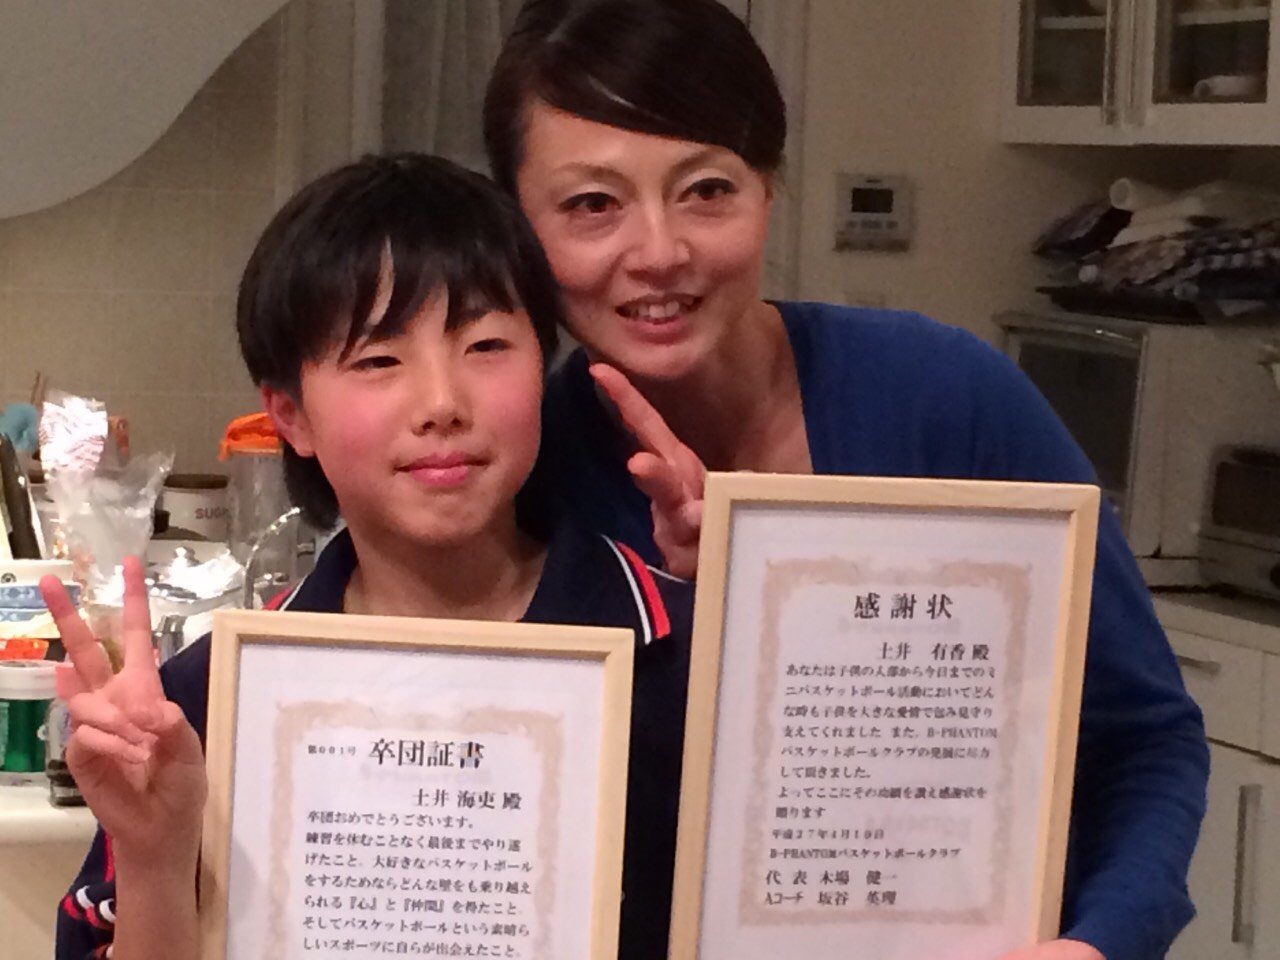 第001号 卒団証書
土井 海吏 殿
卒団おめでとうございます。
練習を休むことなく最後までやり遂
げたこと。大好きなバスケットボール
をするためならどんな壁をも乗り越え
られる『心』と『仲間』を得たこと。
そしてバスケットボールという素晴ら
しいスポーツに自らが出会えたこと。
感謝状
土井 有香 殿
あなたは子供の入部から今日までのミ
ニバスケットボール活動においてどん
な時も子供を大きな愛情で包み見守り
支えてくれました また、B-PHANTOM
バスケットボールクラブの発展に尽力
して頂きました。
よってここにその功績を讃え感謝状を
贈ります
平成27年4月19日
B-PHANTOMバスケットボールクラブ
代 表 木場 健一
Aコーチ 坂谷 英理
SUG